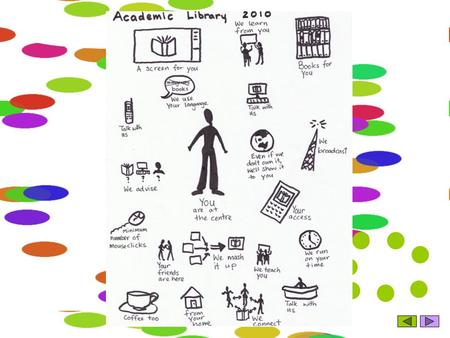 Academic Library 2010
A screen for you
We learn
from you
Books for
you
books
We use
your language
Talk with
us
Talk with
us
Even if we
don't own it,
we'll show it
to you
We
broadcast
We advise
You
are at
the centre
Your
access
minimum
number of
mouseclicks
Your
friends
are here
We mash
it up
We teach
you
We run
on your
time
Coffee too
from
your
home
We
connect
Talk with
us